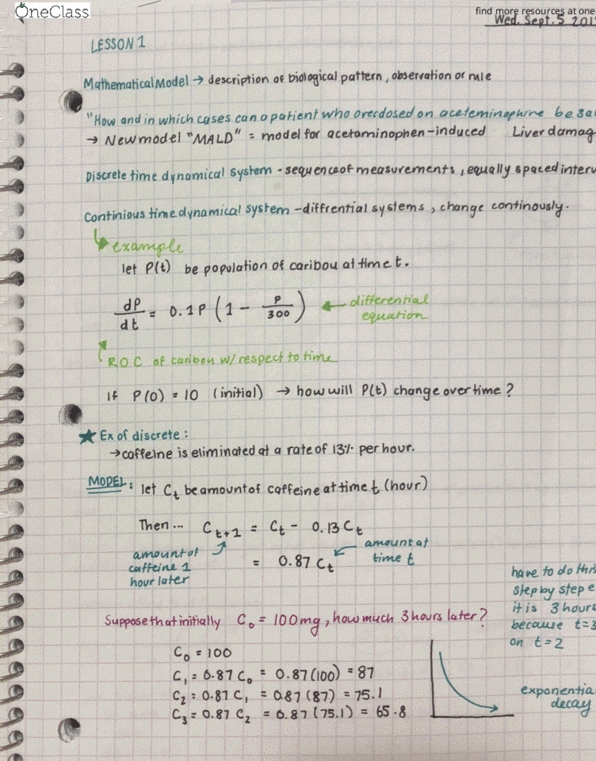 OneClass
find more resources at one
Wed. Sept. 5 201
LESSON 1
Mathematical Model → description of biological pattern, observation or rule
"How and in which cases can a patient who overdosed on aceteminophine be sa
→ New model "MALD" = model for acetaminophen-induced Liver damag
Discrete time dynamical system - sequence of measurements, equally spaced interv
Continious time dynamical system - diffrential systems, change continously.
example
let P(t) be population of caribou at time t.
dP/dt = 0.1P (1 - P/300) ← differential equation
ROC of caribou w/ respect to time
If P(0) = 10 (initial) → how will P(t) change over time?
★ Ex of discrete:
→ caffeine is eliminated at a rate of 13% per hour.
MODEL: let Ct be amount of caffeine at time t (hour)
Then... Ct+1 = Ct - 0.13 Ct
amount of caffeine 1 hour later
= 0.87 Ct
amount at time t
have to do this
step by step
it is 3 hours
because t=3
on t=2
Suppose that initially C0 = 100mg, how much 3 hours later?
C0 = 100
C1 = 0.87 C0 = 0.87(100) = 87
C2 = 0.87 C1 = 0.87(87) = 75.1
C3 = 0.87 C2 = 0.87(75.1) = 65.8
exponentia
decay